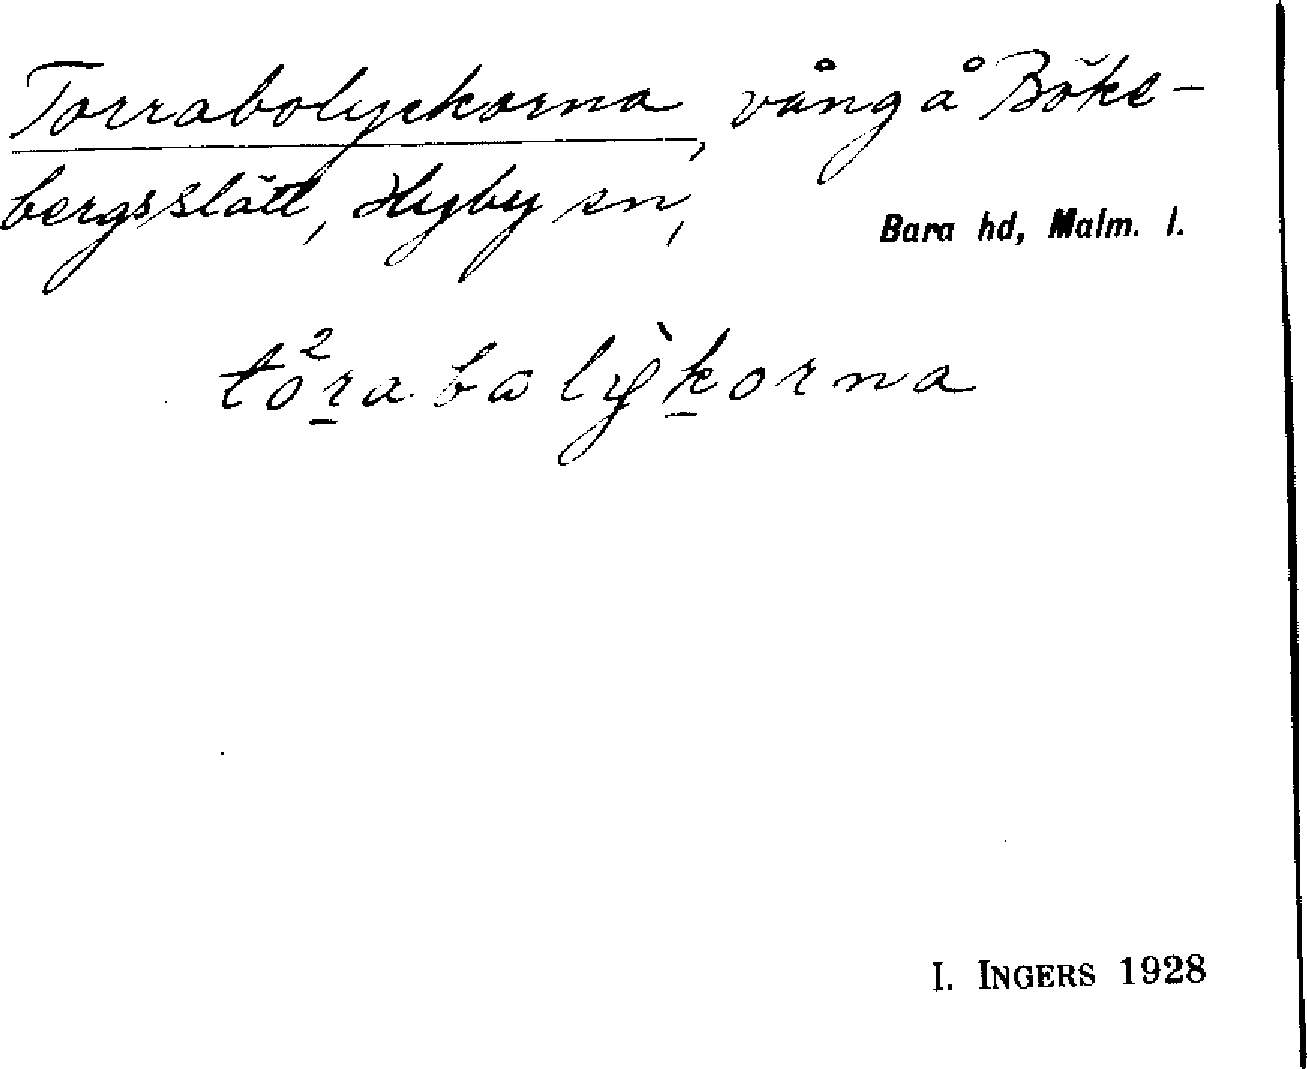 Torrabolyckorna, vång å Böke-
bergsslätt, Hyby sn, Bara hd, Malm. l.
tò²rabωlỳkorna
I. INGERS 1928